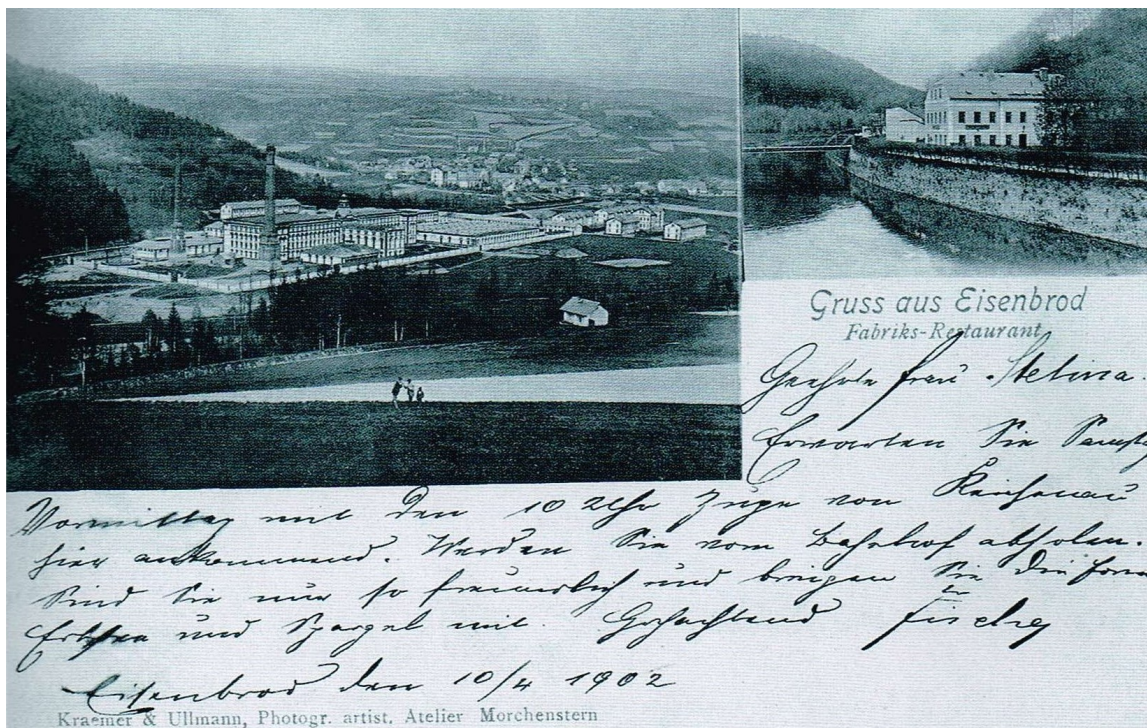 Gruss aus Eisenbrod
Fabriks-Restaurant
Geehrte Frau Stelina.
Erwarten Sie Samstag
Vormittag mit den 10 Uhr Zuge von Reichenau
hier ankommend. Werden Sie vom Bahnhof abholen.
Sind Sie nur so freundlich und bringen Sie die
Erbsen und Spargel mit. Hochachtend
Eisenbrod den 10/4 1902
Kraemer & Ullmann, Photogr. artist. Atelier Morchenstern